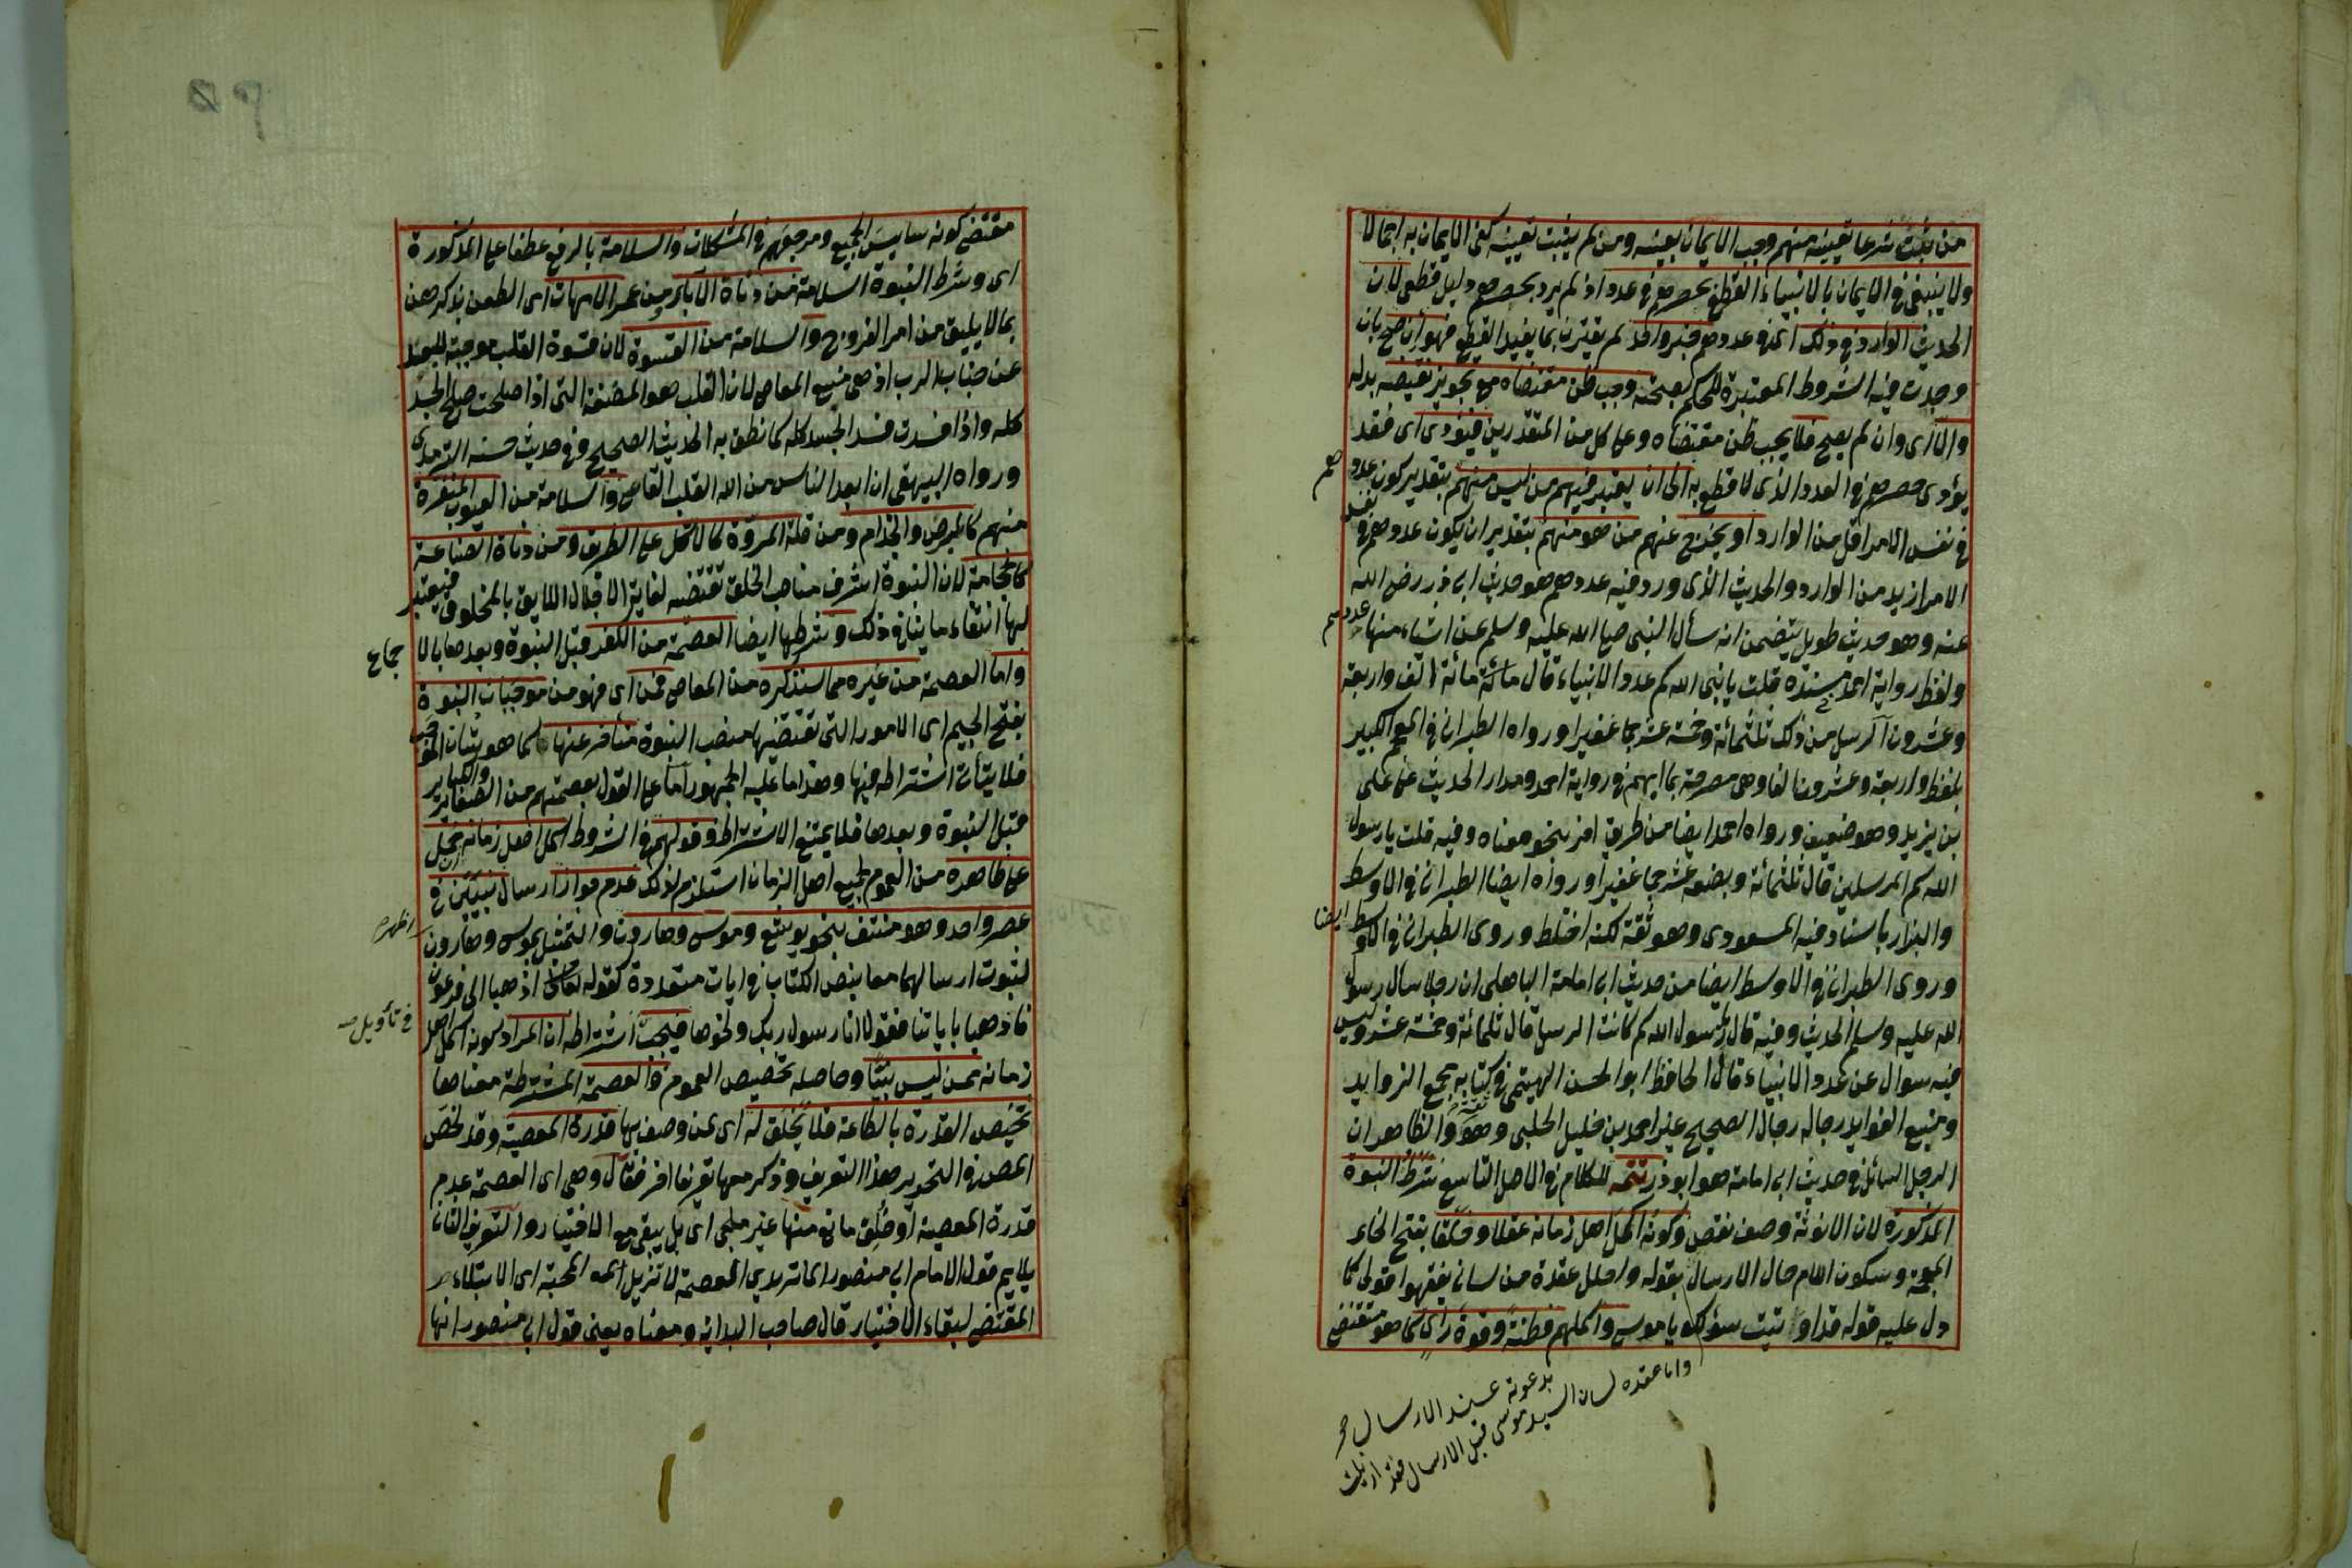 من ثبت شرعا تعيينه منهم وجب الايمان بعينه ومن لم يثبت تعيينه كفى الايمان به اجمالا
ولا ينبغى فى الايمان بالانبياء القطع بحصرهم فى عدد اذ لم يرد بحصرهم دليل قطعى لان
الحديث الوارد فى ذلك اى فى عددهم خبر واحد لم يقترن بما يفيد القطع فهو ان صح بان
وجدت فيه الشروط المعتبرة للحكم بصحته وجب ظن مقتضاه مع تجويز نقيضه بدله
والا اى وان لم يصح فلا يجب ظن مقتضاه وعلى كل من المتقدرين فيؤدى اى فقد
يؤدى حصرهم فى العدد الذى لا قطع به الى ان يعتبر فيهم من ليس منهم بتقدير كون عددهم
فى نفس الامر اقل من الوارد او يخرج عنهم من هو منهم بتقدير ان يكون عددهم فى نفس
الامر ازيد من الوارد والحديث الذى ورد فيه عددهم هو حديث ابى ذر رضى الله
عنه وهو حديث طويل يتضمن انه سأل النبى صلى الله عليه وسلم عن اشياء منها عددهم
ولفظ رواية احمد فى مسنده قلت يا نبى الله كم عدد الانبياء قال مائة الف واربعة
وعشرون الرسل من ذلك ثلثمائة وخمسة عشر جما غفيرا ورواه الطبرانى فى المعجم الكبير
بلفظ واربعة وعشرون الفا وهى مصرحة بما ابهم فى رواية احمد ومدار الحديث على على
بن يزيد وهو ضعيف ورواه احمد ايضا من طريق اخر بنحو معناه وفيه قلت يا رسول
الله كم المرسلين قال ثلثمائة وبضعة عشر جما غفيرا ورواه ايضا الطبرانى فى الاوسط
والبزار باسناد فيه المسعودى وهو ثقة لكنه اختلط وروى الطبرانى فى الاوسط ايضا
وروى الطبرانى فى الاوسط ايضا من حديث ابى امامة الباهلى ان رجلا سال رسول
الله عليه وسلم الحديث وفيه قال يا رسول الله كم كانت الرسل قال ثلثمائة وخمسة عشر وليس
فيه سوال عن عدد الانبياء قال الحافظ ابو الحسن الهيتمى فى كتابه مجمع الزوايد
ومنبع الفوايد رجاله رجال الصحيح غير احمد بن خليل الحلبى وهو ثقة والظاهر ان
الرجل السائل فى حديث ابى امامة هو ابو ذر تتمة للكلام فى الاصل التاسع شرط النبوة
المذكورة لان الانوثة وصف نقص وكونه اكمل اهل زمانه عقلا وخلقا بفتح الخاء
المعجمة وسكون اللام حال الارسال بقوله واحلل عقدة من لسانى يفقهوا قولى كما
دل عليه قوله قد اوتيت سؤلك يا موسى واكملهم فطنة وقوة راى كما هو مقتضى
واما عقدة لسان السيد موسى قبل الارسال فقد ازيلت
بدعوته عند الارسال صح
مقتضى كونه سايس الجميع ومرجعهم فى المشكلات والسلامة بالرفع عطفا على المذكورة
اى وشرط النبوة السلامة من دناءة الآباء ومن عهر الامهات اى الطعن بذكرهن
بما لا يليق من امر الفروج والسلامة من القسوة لان قسوة القلب موجبة للبعد
عن جناب الرب اذ هى منبع المعاصى لان القلب هو المضغة التى اذا صلحت صلح الجسد
كله واذا فسدت فسد الجسد كله كما نطق به الحديث الصحيح وفى حديث حسنه الترمذى
ورواه البيهقى ان ابعد الناس من الله القلب القاسى والسلامة من العيوب المنفرة
منهم كالبرص والجذام ومن قلة المروة كالاكل على الطريق ومن دناءة الصناعة
كالحجامة لان النبوة اشرف مناصب الخلق تقتضيه لغاية الاجلال اللايق بالمخلوق فيعتبر
لها انتفاء ما ينافى ذلك وشرطها ايضا العصمة من الكفر قبل النبوة وبعدها بالا
جماع
واما العصمة من غيره مما سنذكره من المعاصى فمن اى فهو من موجبات النبوة
بفتح الجيم اى الامور التى تقتضيها منصب النبوة متأخر عنها كما هو شأن الموجب
فلا يتأتى اشتراطه فيها وهذا ما عليه الجمهور اما على القول بعصمتهم من الصغاير والكباير
قبل النبوة وبعدها فلا يمتنع الاشتراط وقولهم فى الشروط اكمل اهل زمانه يحمل
على ظاهره من العموم لجميع اهل الزمان استلزم لذلك عدم جواز ارسال نبيين فى
عصر واحد وهو منتف بنحو يوشع وموسى وهارون والتمثيل بموسى وهارون اظهر
لثبوت ارسالهما معا بنص الكتاب فى ايات متعددة كقوله تعالى اذهبا الى فرعون
فاذهبا باياتنا فقولا انا رسول ربك ونحوها فيجب فى تأويل اشتراطه ان المراد كونه اكمل اهل
زمانه ممن ليس نبيا وحاصله تخصيص العموم والعصمة المشترطة معناها
تخصيص القدرة بالطاعة فلا يخلق له اى لمن وصف بها قدرة المعصية وقد لخص
المص فى التحرير هذا التعريف وذكر معها تعريفا اخر فقال وهى اى العصمة عدم
قدرة المعصية او خلق مانع منها غير ملجى اى بل يبقى مع الاختيار والتعريف الثانى
يلايم قول الامام ابى منصور الماتريدى العصمة لا تزيل المحنة اى الابتلاء
المقتضى لبقاء الاختيار قال صاحب البداية ومعناه يعنى قول ابى منصور انها